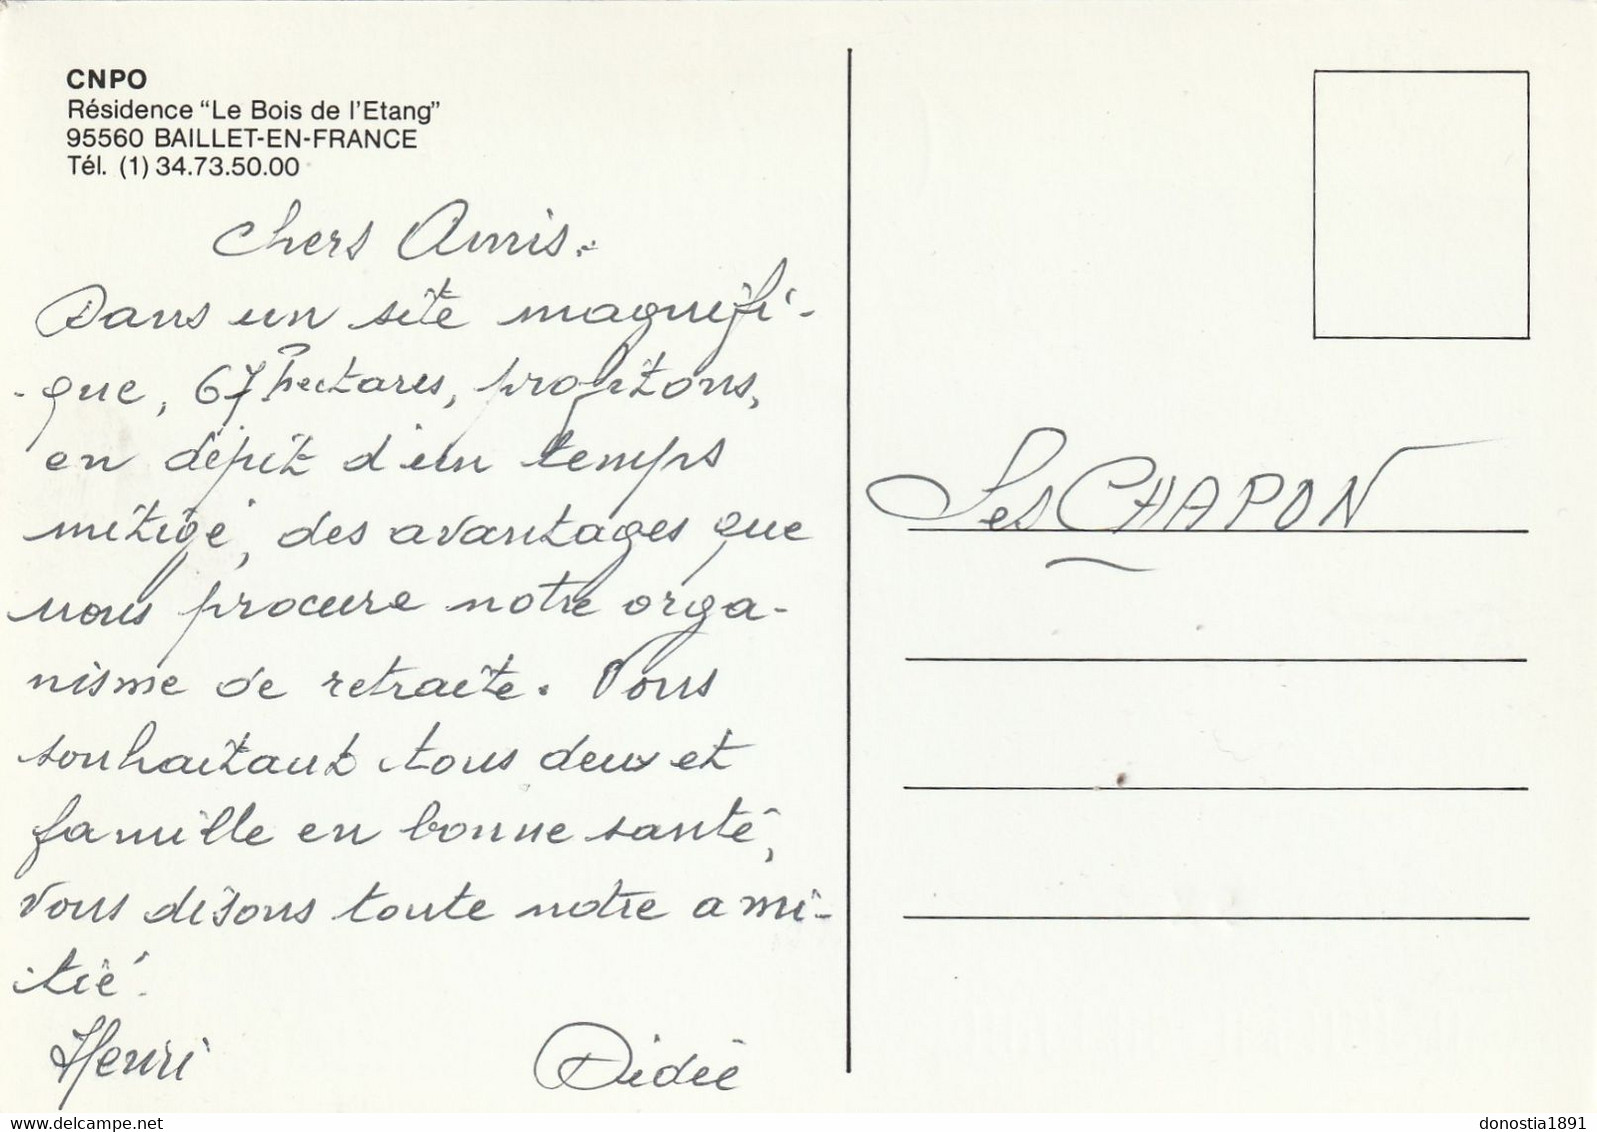 CNPO
Résidence “Le Bois de l’Etang”
95560 BAILLET-EN-FRANCE
Tél. (1) 34.73.50.00
Chers Amis.
Dans un site magnifi-
-que, 67 hectares, profitons,
en dépit d'un temps
mitigé, des avantages que
nous procure notre orga-
nisme de retraite. Vous
souhaitant tous deux et
famille en bonne santé,
vous disons toute notre ami-
tié.
Henri Didie
Les CHAPON
donostia1891